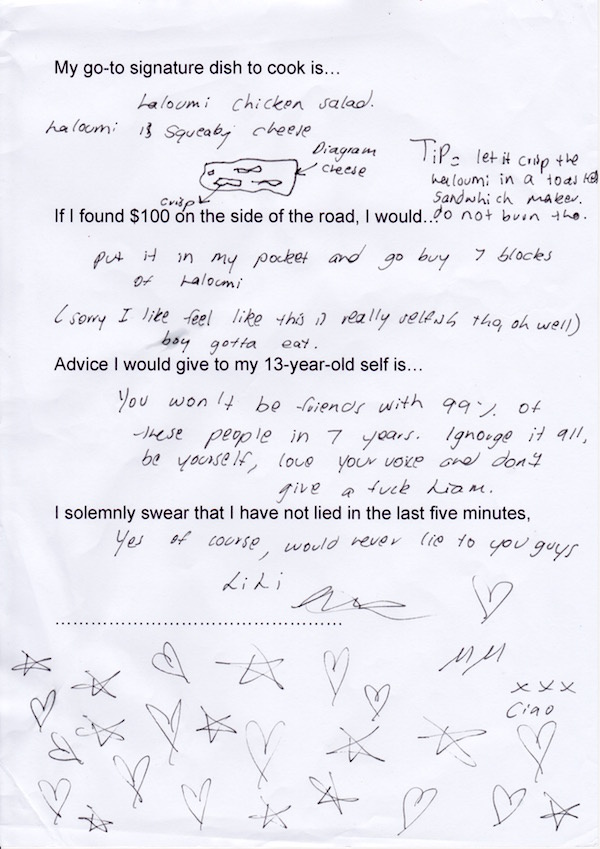 My go-to signature dish to cook is...
haloumi chicken salad.
haloumi is squeaky cheese
Diagram
cheese
crisp
TIP= let it crisp the
haloumi in a toasted
sandwhich maker.
do not burn tho.
If I found $100 on the side of the road, I would...
put it in my pocket and go buy 7 blocks
of haloumi
(sorry I like feel like this is really selfish tho, oh well)
boy gotta eat.
Advice I would give to my 13-year-old self is...
You won't be friends with 99% of
these people in 7 years. Ignorge it all,
be yourself, love your voice and don't
give a fuck Liam.
I solemnly swear that I have not lied in the last five minutes,
Yes of course, would never lie to you guys
LiLi
xxx
Ciao